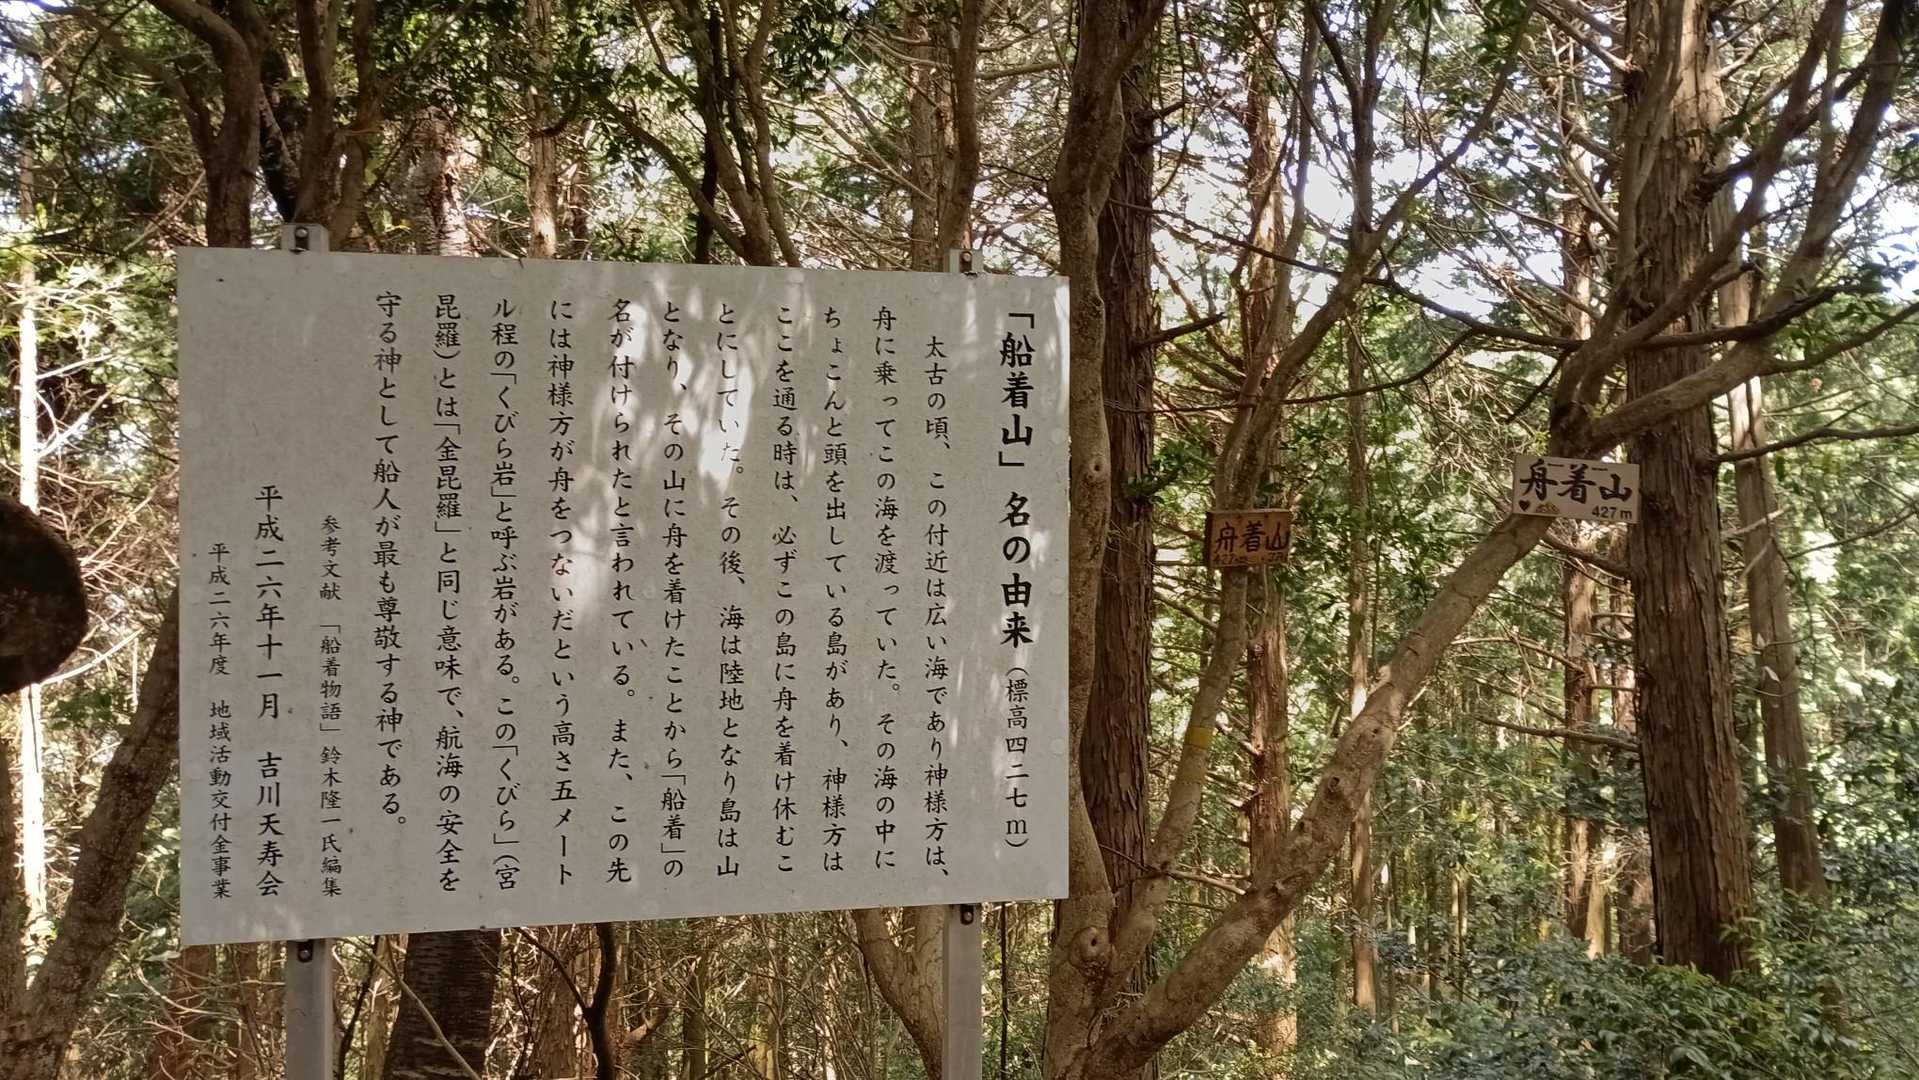 「船着山」名の由来（標高四二七ｍ）
太古の頃、この付近は広い海であり神様方は、
舟に乗ってこの海を渡っていた。その海の中に
ちょこんと頭を出している島があり、神様方は
ここを通る時は、必ずこの島に舟を着け休むこ
とにしていた。その後、海は陸地となり島は山
となり、その山に舟を着けたことから「船着」の
名が付けられたと言われている。また、この先
には神様方が舟をつないだという高さ五メート
ル程の「くびら岩」と呼ぶ岩がある。この「くびら」（宮
昆羅）とは「金昆羅」と同じ意味で、航海の安全を
守る神として船人が最も尊敬する神である。
参考文献　「船着物語」鈴木隆一氏編集
平成二六年十一月　吉川天寿会
平成二六年度　地域活動交付金事業
舟着山
舟着山
427m